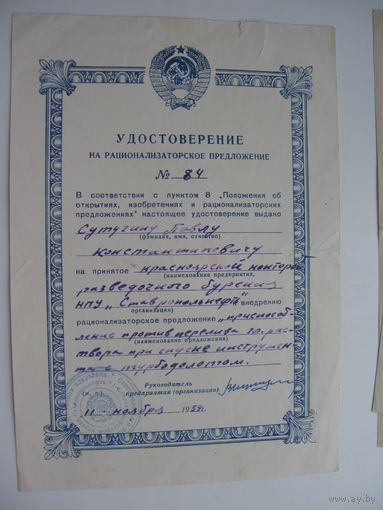 УДОСТОВЕРЕНИЕ
НА РАЦИОНАЛИЗАТОРСКОЕ ПРЕДЛОЖЕНИЕ
№ 84
В соответствии с пунктом 8 „Положения об
открытиях, изобретениях и рационализаторских
предложениях" настоящее удостоверение выдано
Сутугину Павлу
(фамилия, имя, отчество)
Константиновичу
на принятое Красноярской конторой
(наименование предприятия,
разведочного бурения
НПУ „Ставропольнефть" внедрению
организации)
рационализаторское предложение „приспособ-
ление против перелива гл. рас-
(наименование предложения)
твора при спуске инструмен-
та с турбодолотом.
Руководитель
предприятия (организации)
11 ноября 1959г.
ay.by